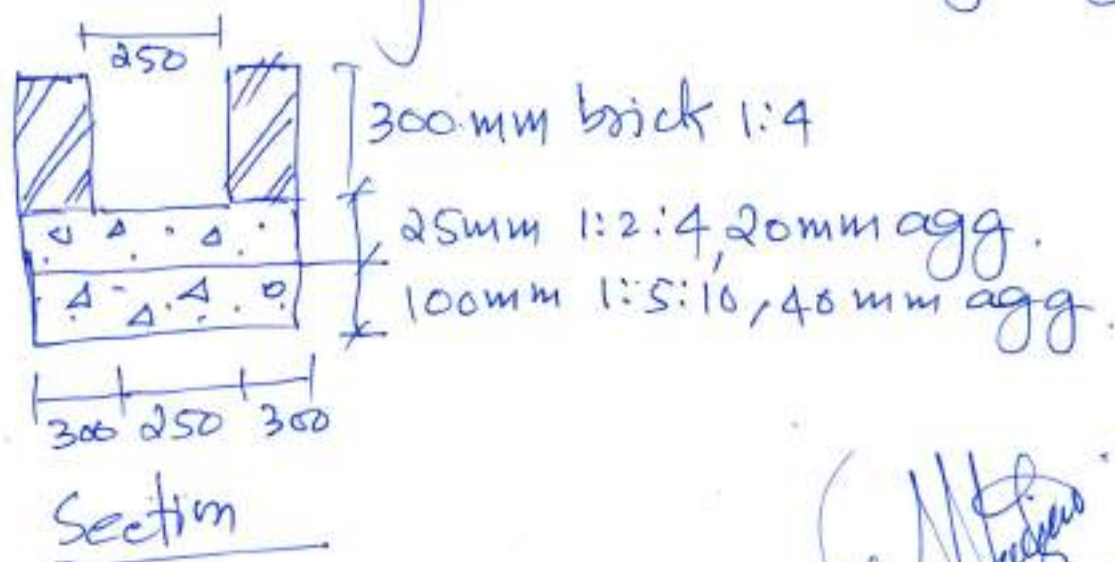 250
300mm brick 1:4
25mm 1:2:4, 20mm agg.
100mm 1:5:10, 40mm agg.
300 250 300
Section